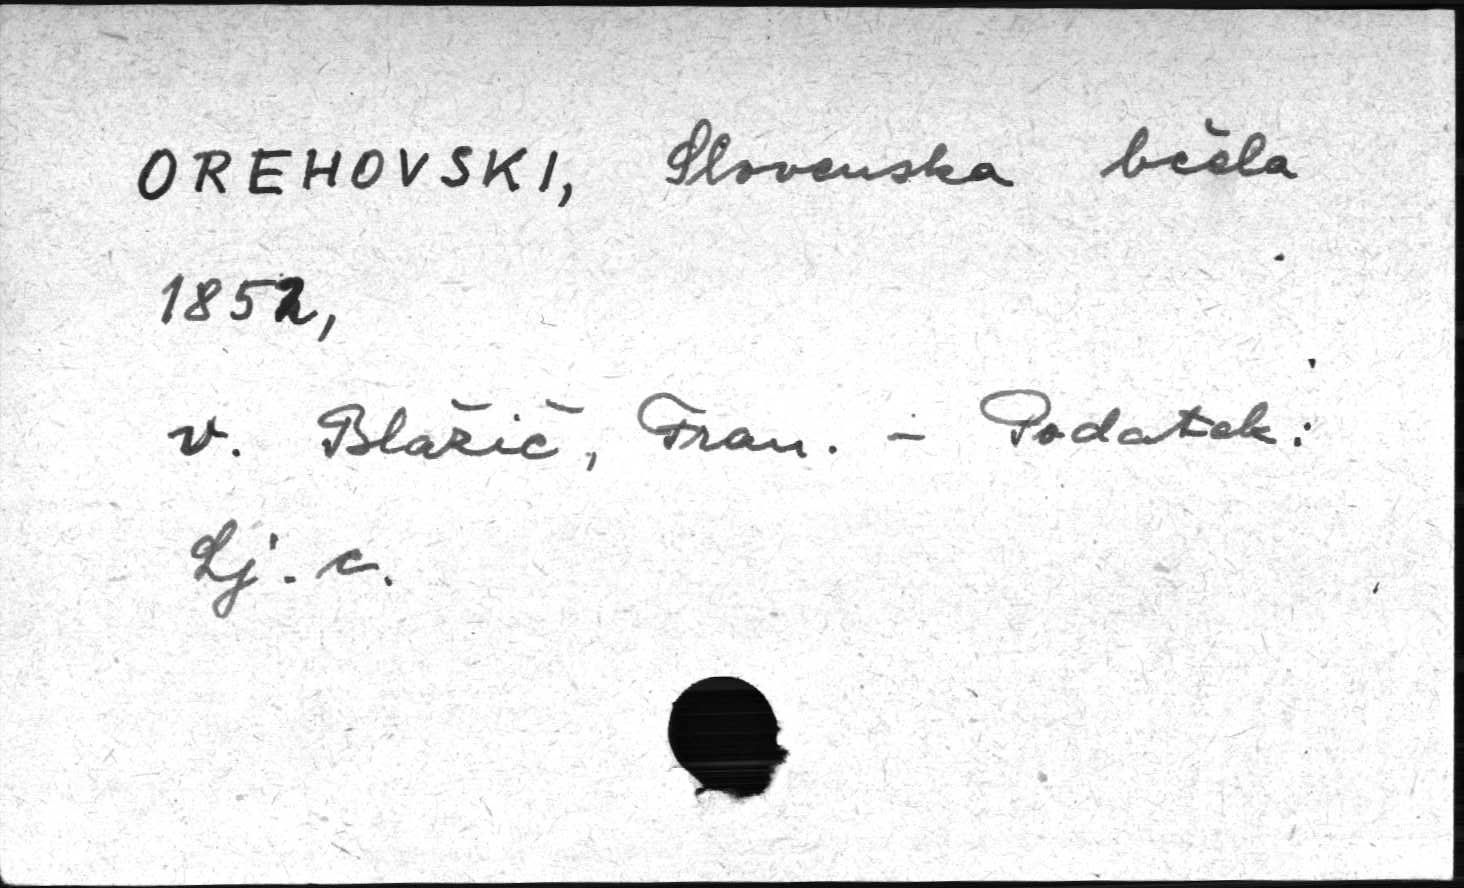 OREHOVSKI, Slovenska bčela
1852,
v. Blažič, Fran. - Podatek:
Lj. c.